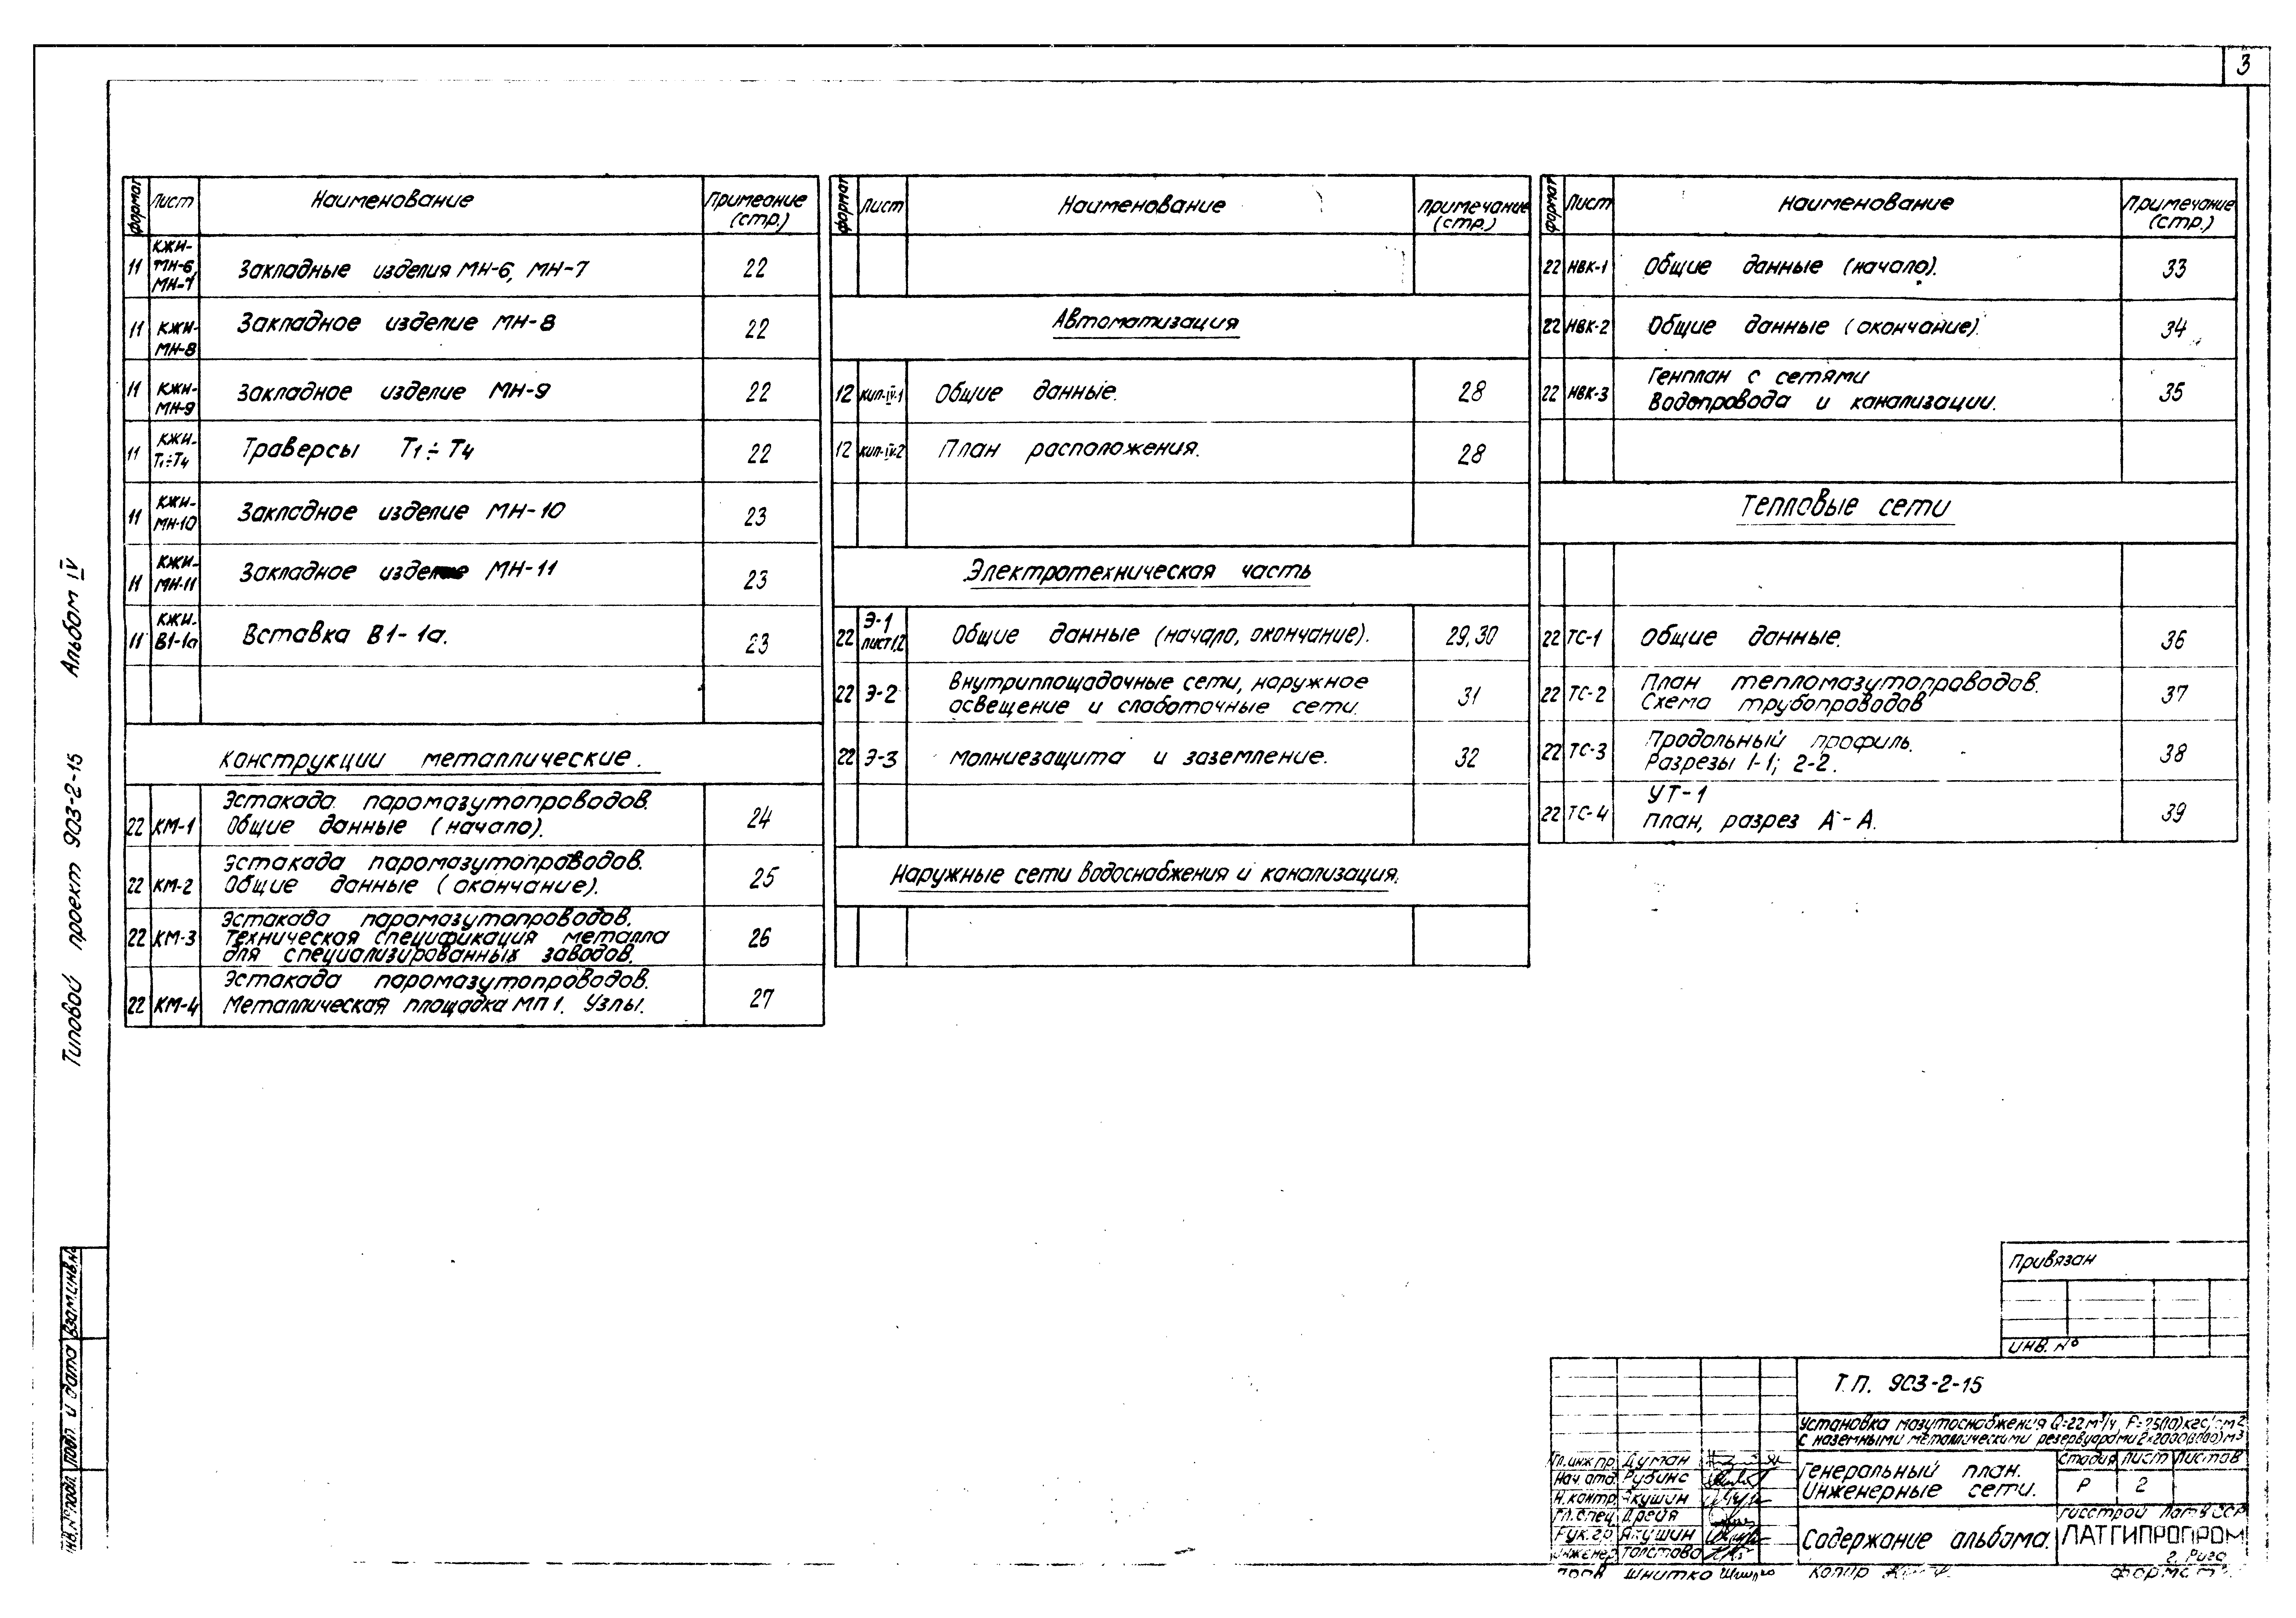 3
формат Лист Наименование Примеание (стр.)
КЖИ-
11 МН-6, Закладные изделия МН-6, МН-7 22
МН-7
11 КЖИ- Закладное изделие МН-8 22
МН-8
11 КЖИ- Закладное изделие МН-9 22
МН-9
КЖИ-
11 Т1÷Т4 Траверсы Т1÷Т4 22
КЖИ-
11 МН-10 Закладное изделие МН-10 23
КЖИ-
11 МН-11 Закладное изделие МН-11 23
КЖИ-
11 В1-1а Вставка В1-1а. 23
Конструкции металлические.
Эстакада паромазутопроводов.
22 КМ-1 Общие данные (начало). 24
Эстакада паромазутопроводов.
22 КМ-2 Общие данные (окончание). 25
Эстакада паромазутопроводов.
22 КМ-3 Техническая спецификация металла 26
для специализированных заводов.
Эстакада паромазутопроводов.
22 КМ-4 Металлическая площадка МП1. Узлы. 27
формат Лист Наименование Примечание (стр.)
Автоматизация
12 КИП-IV-1 Общие данные. 28
12 КИП-IV-2 План расположения. 28
Электротехническая часть
Э-1
22 лист1,2 Общие данные (начало, окончание). 29,30
Внутриплощадочные сети, наружное
22 Э-2 освещение и слаботочные сети. 31
22 Э-3 Молниезащита и заземление. 32
Наружные сети водоснабжения и канализация.
формат Лист Наименование Примечание (стр.)
22 НВК-1 Общие данные (начало). 33
22 НВК-2 Общие данные (окончание). 34
Генплан с сетями
22 НВК-3 Водопровода и канализации. 35
Тепловые сети
22 ТС-1 Общие данные. 36
План тепломазутопроводов.
22 ТС-2 Схема трубопроводов 37
Продольный профиль.
22 ТС-3 Разрезы 1-1; 2-2. 38
УТ-1
22 ТС-4 План, разрез А-А. 39
Типовой проект 903-2-15 Альбом IV
Взам.инв.№
Подп и дата
Инв.№подл.
Привязан
Инв. №
Т.П. 903-2-15
Установка мазутоснабжения Q=22м³/ч,
с наземными металлическими резервуарами
Гл.инж.пр. Думан
Нач.отд. Рубинс
Н.контр. Якушин
Гл.спец. Дрейя
Рук.гр. Якушин
Инженер Толстова
Пров. Шнитко
Генеральный план.
Инженерные сети.
Стадия Лист Листов
Р 2
Содержание альбома.
Госстрой Латв ССР
ЛАТГИПРОПРОМ
г. Рига
Копир
Формат